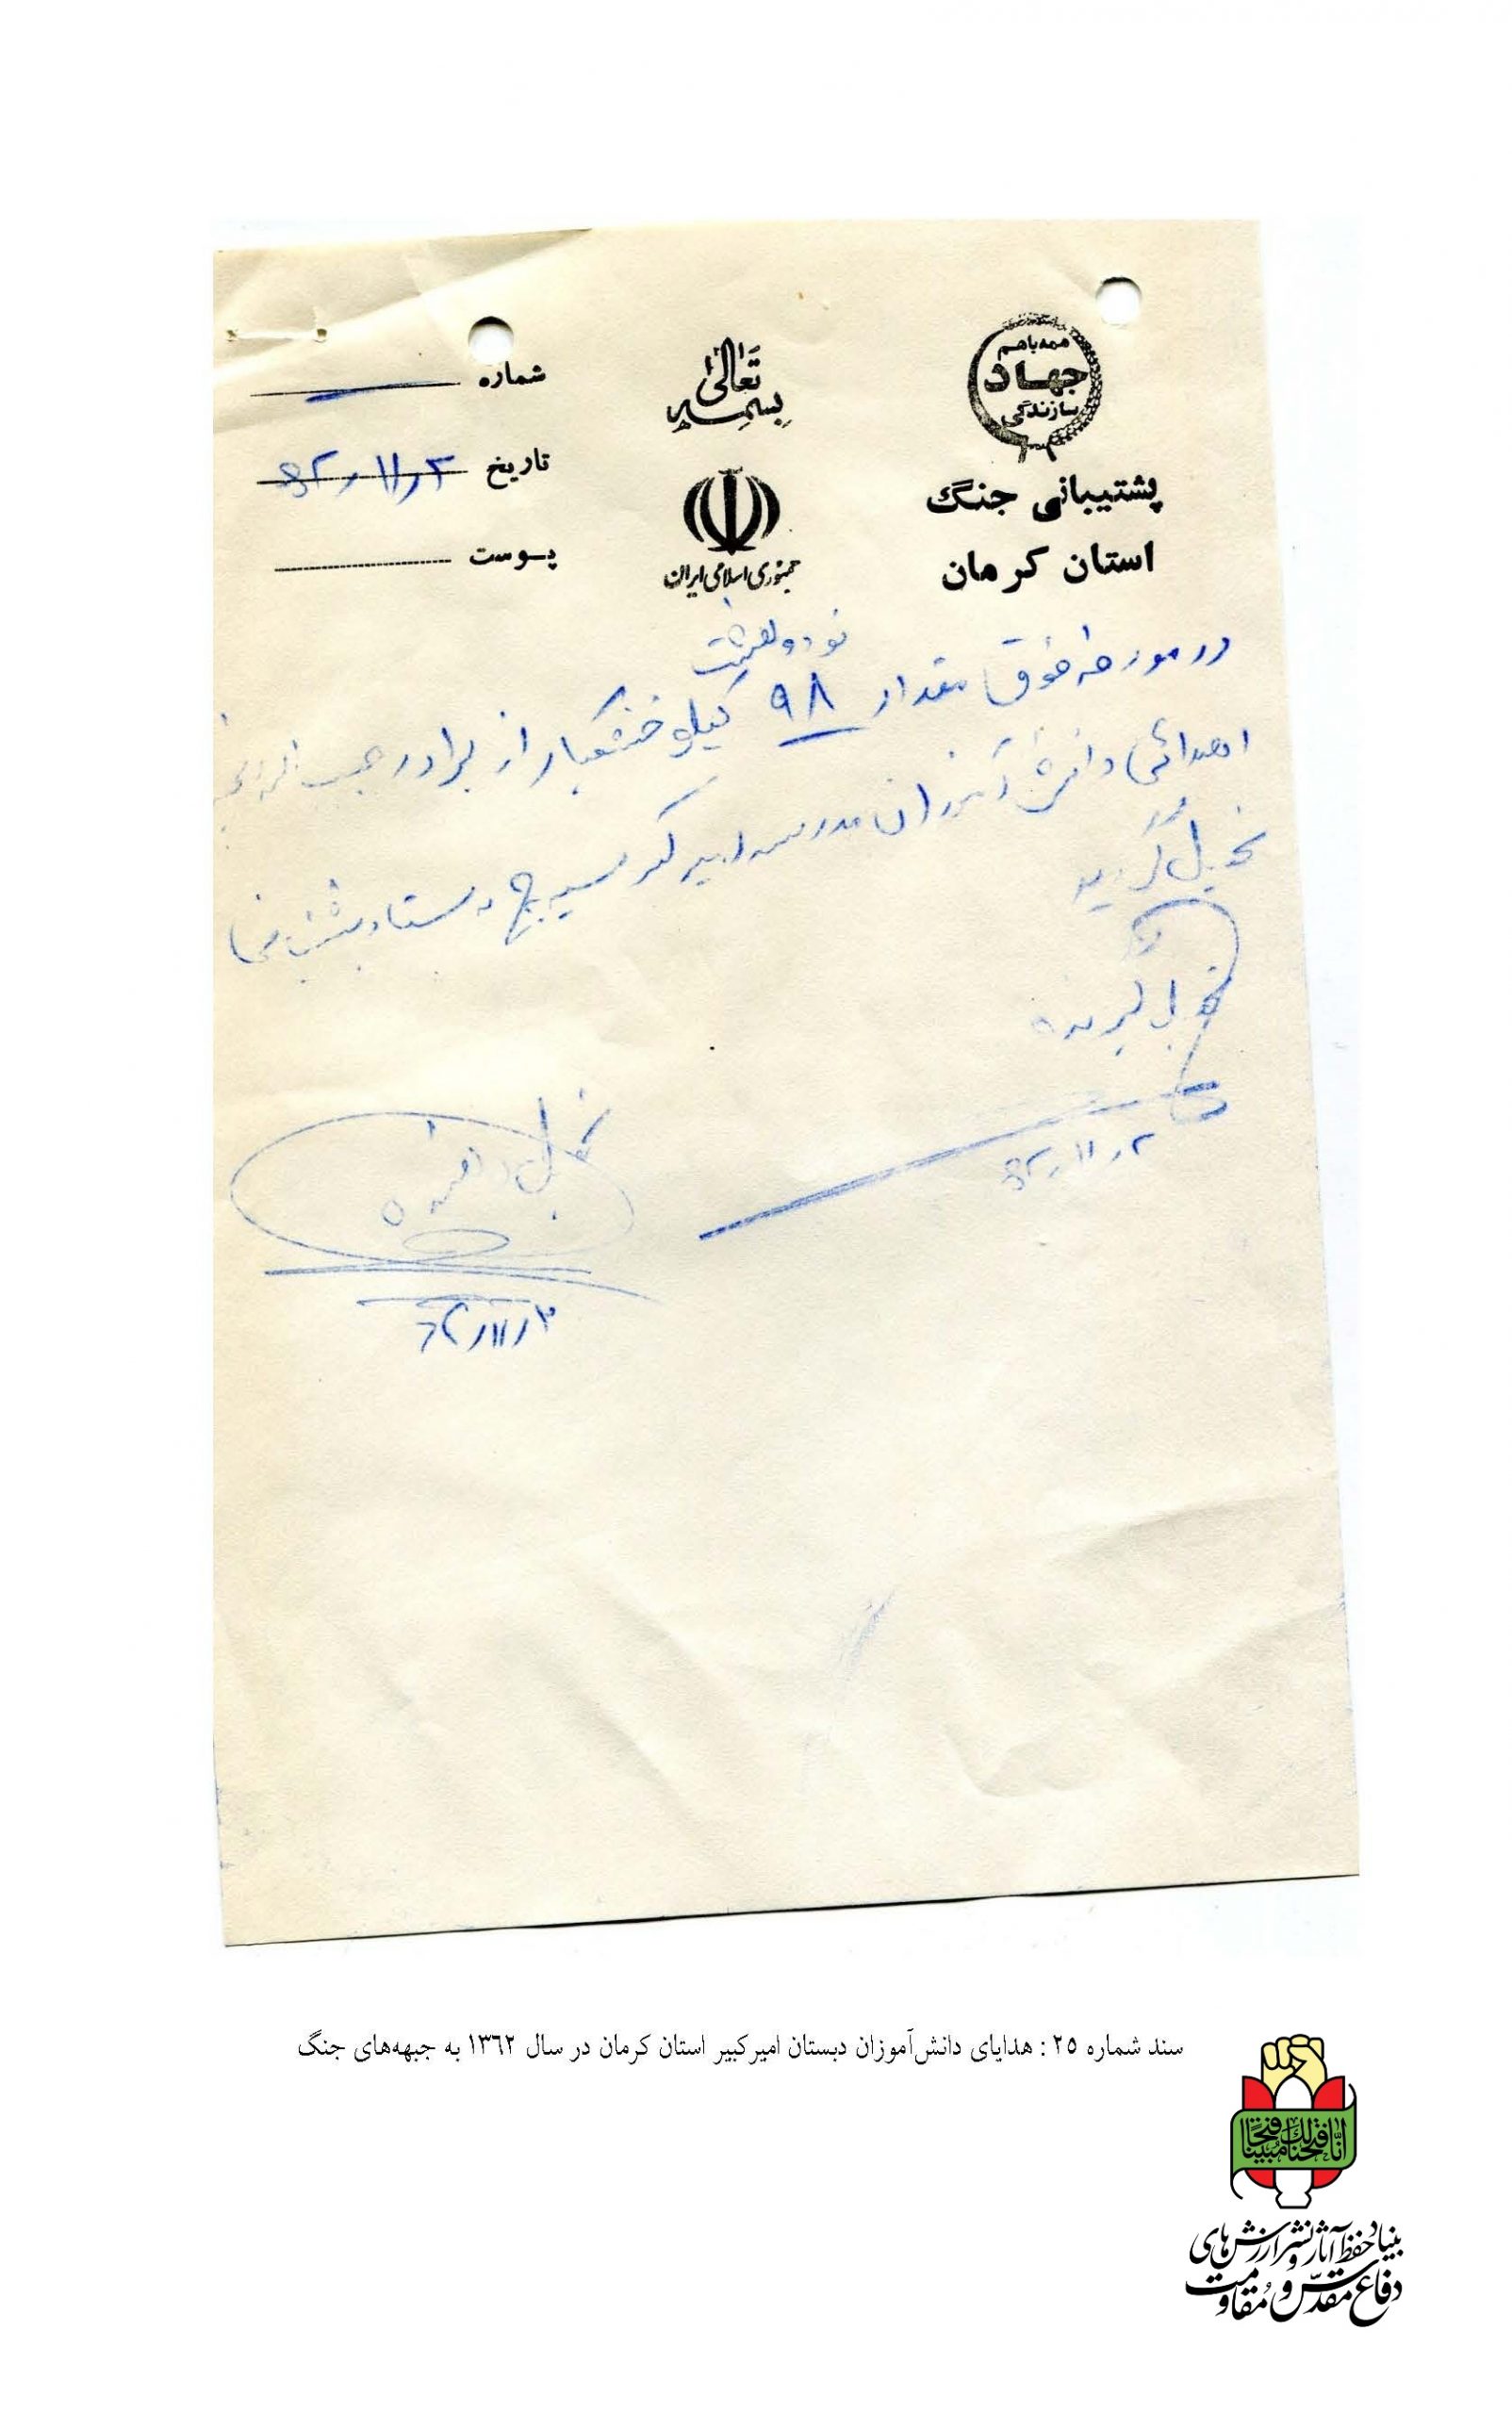 همه باهم
جهاد
سازندگی
پشتیبانی جنگ
استان کرمان
بسمه تعالی
جمهوری اسلامی ایران
شماره
تاریخ ۶۲٫۱۱٫۳
پیوست
نود و هشت
در مورخه فوق مقدار ۹۸ کیلو خشکبار از برادر
اهدائی دانش آموزان مدرسه امیرکبیر به ستاد پشتیبانی
تحویل گردید
تحویل گیرنده
۶۲٫۱۱٫۲
تحویل دهنده
۶۲٫۱۱٫۳
سند شماره ۲۵ : هدایای دانش‌آموزان دبستان امیرکبیر استان کرمان در سال ۱۳۶۲ به جبهه‌های جنگ
انّا فتحنا لک فتحاً مبینا
بنیاد حفظ آثار و نشر ارزش‌های
دفاع مقدّس و مقاومت